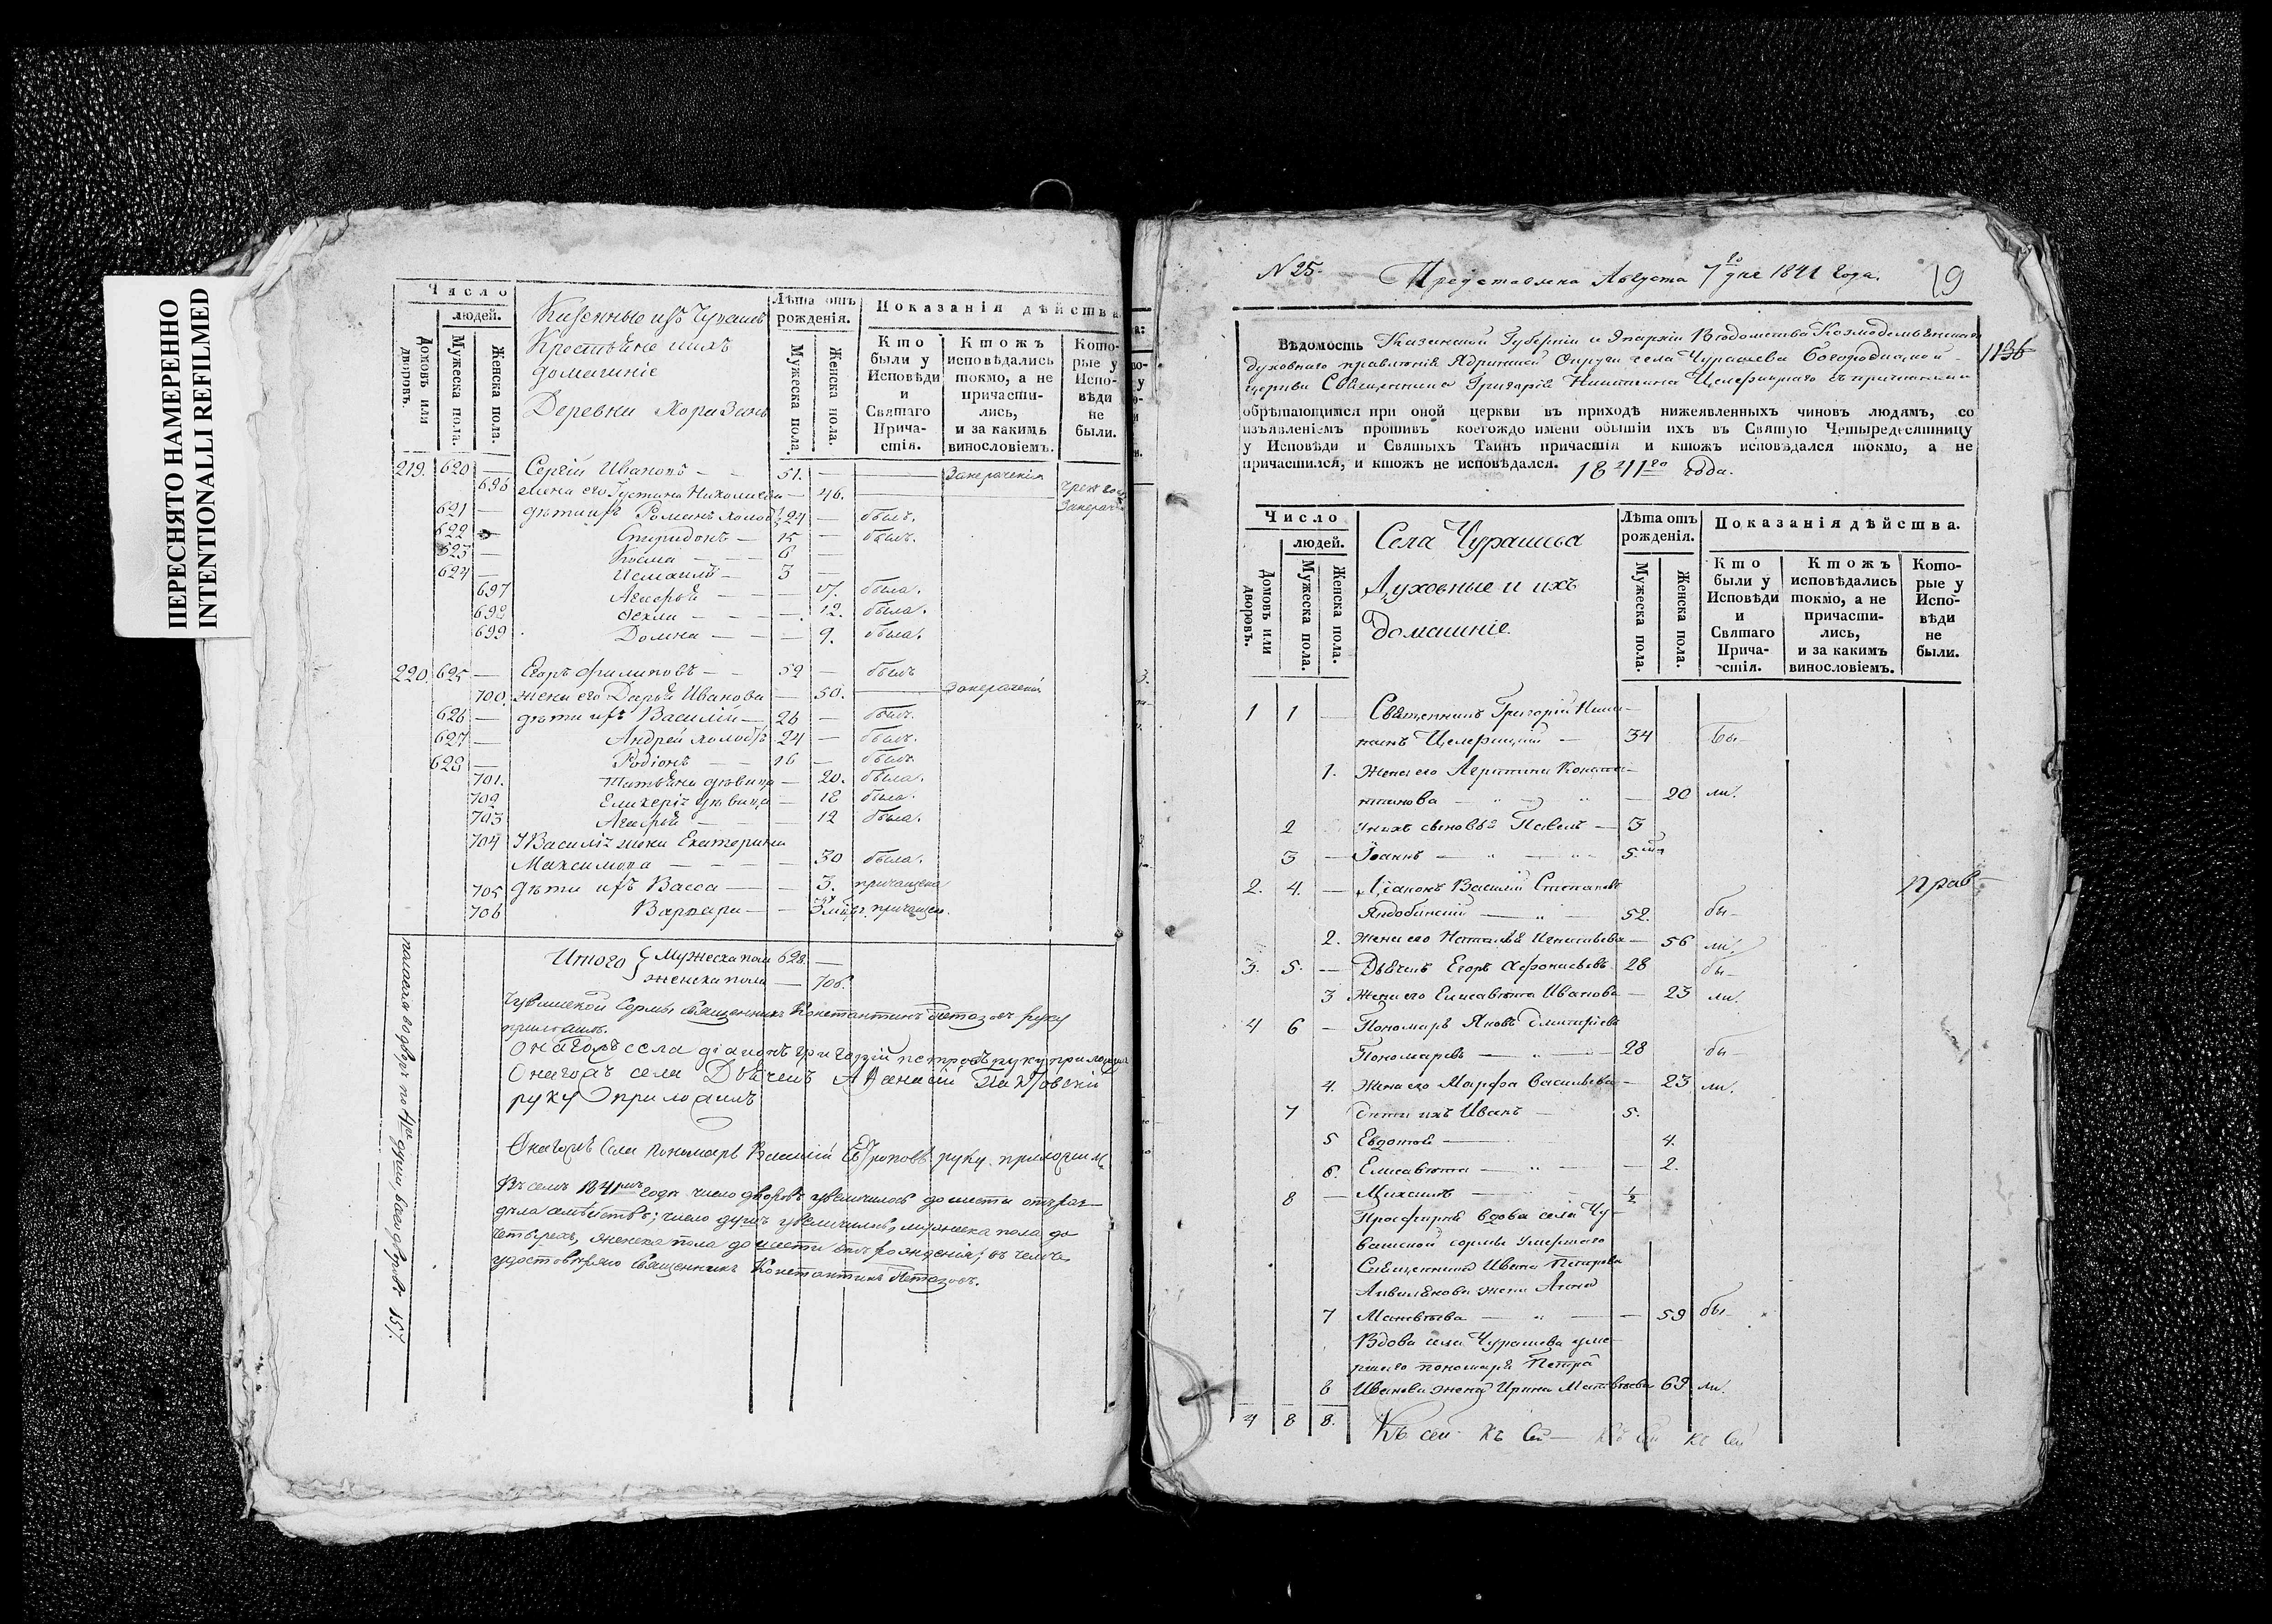 ПЕРЕСНЯТО НАМЕРЕННО
INTENTIONALLI REFILMED
Число
людей.
Домовъ или дворовъ.
Мужеска пола.
Женска пола.
Казенные изъ Чувашъ
Крестьяне и ихъ
домашніе
Деревни
Лѣта отъ рожденія.
Мужеска пола
Женска пола.
Показанія дѣйства
Кто были у Исповѣди и Святаго Прича-стія.
Ктожъ исповѣдались токмо, а не причасти-лись, и за какимъ винословіемъ.
Кото-рые у Испо-вѣди не были.
219. 620 — Сергій Ивановъ — 51. —
696 жена его Устинья Николаева — 46.
621 — дѣти ихъ Романъ холостъ 24 — былъ.
622 Спиридонъ — 15 — былъ.
623 — Косма — 6 —
624 — Исмаилъ — 3 —
697 Агафья — 17. была.
698 Фекла — 12. была.
699 Домна — 9. была.
220. 625 — Егоръ Филиповъ — 52 — былъ
700. жена его Дарья Иванова — 50.
626 — дѣти ихъ Василій — 26 — былъ.
627 — Андрей холостъ 24 — былъ.
628 — Родіонъ — 16 — былъ.
701. Татьяна дѣвица — 20. была.
702 Гликерія дѣвица — 18 была.
703 Агафья — 12 была.
704 У Василія жена Екатерина
Максимова — 30 была.
705 дѣти ихъ Васса — 3. причащена
706 Варвара — 3 мѣс. причащен.
Итого Мужеска пола 628. —
женска пола — 706.
Чувашской Сормы священникъ Константинъ руку
приложилъ.
Онагожъ села діаконъ Григорій Петровъ руку приложилъ
Онагожъ села Дьячекъ Афанасій
руку приложилъ
Онагожъ Села пономарь Василій руку приложилъ
Въ семъ 1841мъ годѣ число дворовъ увеличилось до шести отъ раз-
дѣла семействъ; число душъ увеличилось мужеска пола до
четырехъ, женска пола до шести отъ рожденія, въ чемъ
удостовѣряю священникъ Константинъ
N 25. Представлена Августа 7го дня 1841 года. 19
1136
Вѣдомость Казанской Губерніи и Епархіи Вѣдомства Козмодемьянскаго
духовнаго правленія Ядринской Округи села Чурашева Богородицкой
церкви Священника Григорія Никитина Целерицкаго съ причтомъ
обрѣтающимся при оной церкви въ приходѣ нижеявленныхъ чиновъ людямъ, со
изъявленіемъ противъ коегождо имени обытіи ихъ въ Святую Четыредесятницу
у Исповѣди и Святыхъ Таинъ причастія и ктожъ исповѣдался токмо, а не
причастился, и ктожъ не исповѣдался. 1841го года.
Число
людей.
Домовъ или дворовъ.
Мужеска пола.
Женска пола.
Села Чурашева
Духовные и ихъ
домашніе.
Лѣта отъ рожденія.
Мужеска пола.
Женска пола.
Показанія дѣйства.
Кто были у Исповѣди и Святаго Прича-стія.
Ктожъ исповѣдались токмо, а не причасти-лись, и за какимъ винословіемъ.
Кото-рые у Испо-вѣди не были.
1 1 — Священникъ Григорій Ники-
тинъ Целерицкій — 34 бы-
1. Жена его Агрипина Констан-
тинова — 20 ли.
2 У нихъ сыновья Павелъ — 3
3 — Іоаннъ — 5.
2. 4. — Діаконъ Василій Степановъ
Яндобинскій — 52. бы-
2. Жена его Наталья Игнатьева — 56 ли.
3. 5. — Дьячекъ Егоръ Афонасьевъ 28 бы-
3 Жена его Елисавета Иванова — 23 ли.
4 6 — Пономарь Яковъ Дмитріевъ
Пономаревъ — 28 бы-
4. Жена его Марфа Васильева — 23 ли.
7 Дѣти ихъ Иванъ — 5.
5 Евдокия — 4.
6. Елисавета — 2.
8 — Михаилъ — 1/2
Просфирня вдова села Чу-
вашской сормы умершаго
Священника Ивана Петрова
жена Анна
7 Матвѣева — 59 бы-
Вдова села Чурашева уме-
ршаго пономаря Петра
8 Иванова жена Ирина Матвѣева 69 ли.
4 8 8. Къ сей Къ Сей Къ Сей Къ Сей